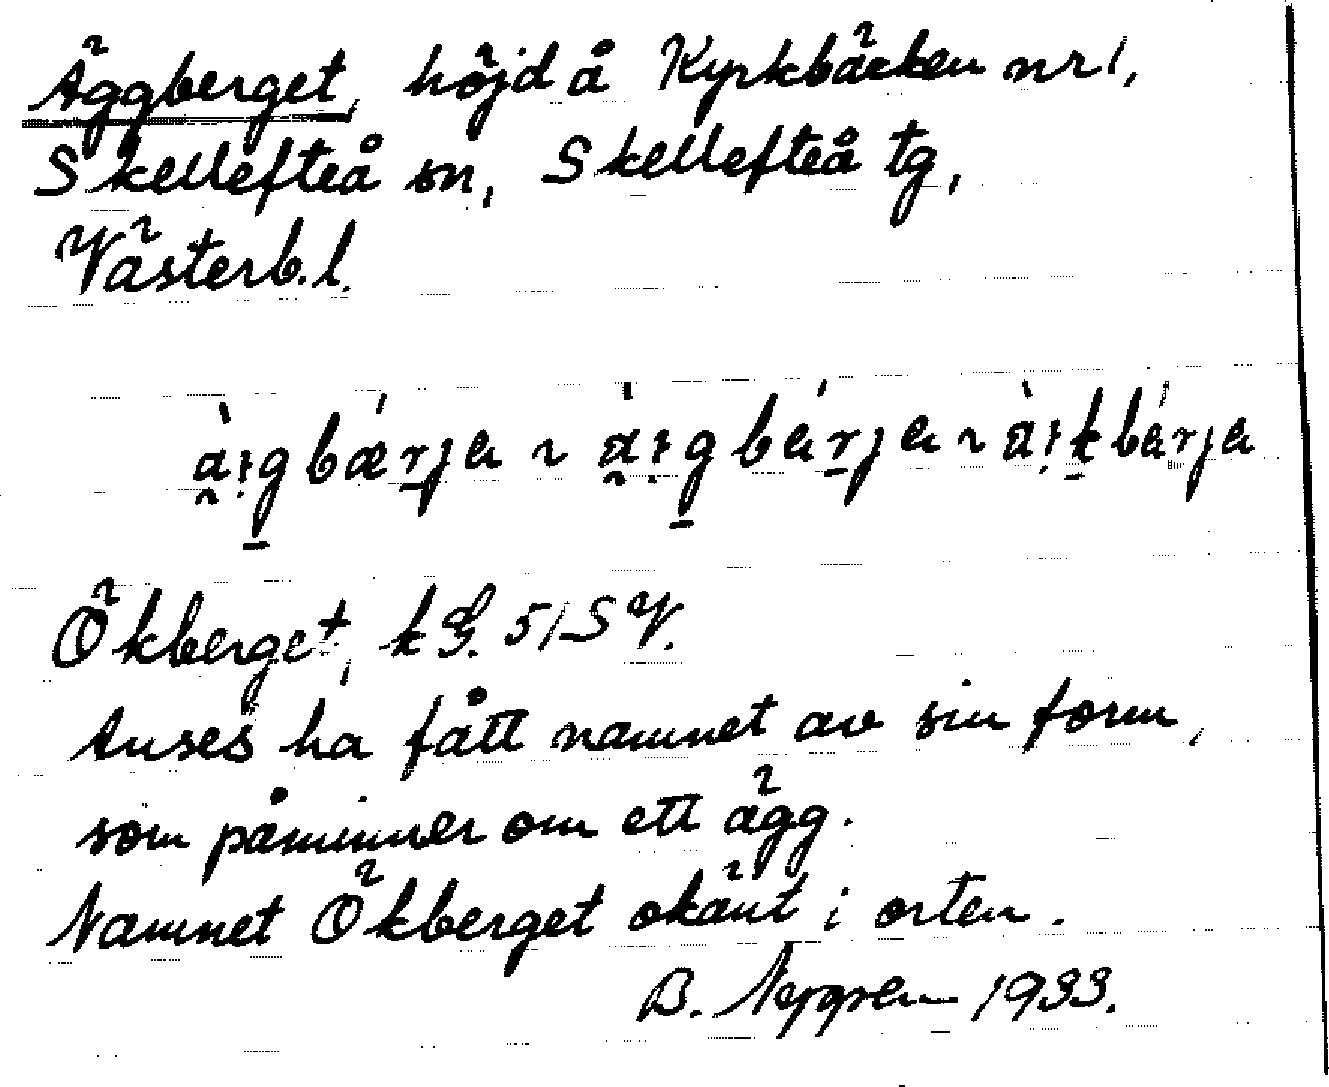 Äggberget, höjd å Kyrkbäcken nr 1,
Skellefteå sn, Skellefteå tg,
Västerb. l.
Ökberget, kG. 51SV.
Anses ha fått namnet av sin form,
som påminner om ett ägg.
Namnet Ökberget okänt i orten.
B. Nygren 1933.